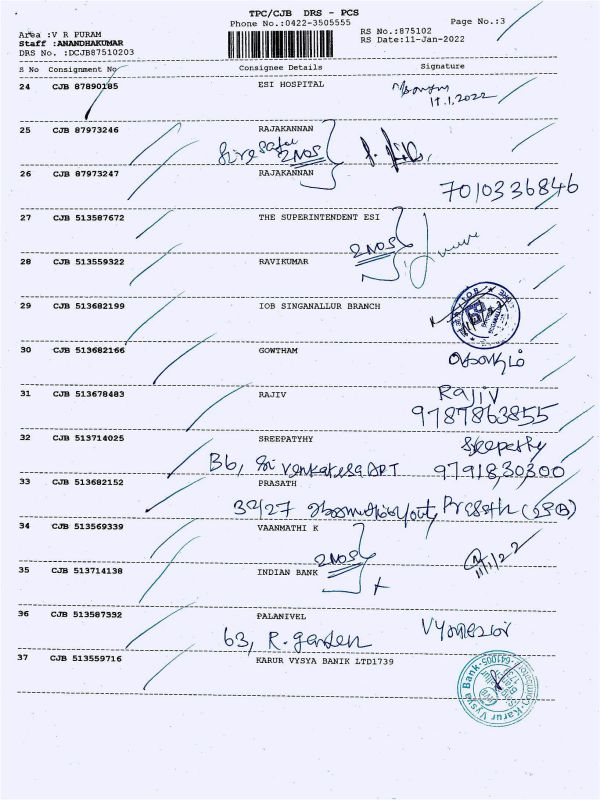 TPC/CJB DRS - PCS
Phone No.:0422-3505555
Page No.:3
Area :V R PURAM
Staff :ANANDHAKUMAR
DRS No. :DCJB87510203
RS No.:875102
RS Date:11-Jan-2022
S No Consignment No Consignee Details Signature
24 CJB 87890185 ESI HOSPITAL
11.1.2022
25 CJB 87973246 RAJAKANNAN
2NOS
26 CJB 87973247 RAJAKANNAN
7010336846
27 CJB 513587672 THE SUPERINTENDENT ESI
2NOS
28 CJB 513559322 RAVIKUMAR
29 CJB 513682199 IOB SINGANALLUR BRANCH
30 CJB 513682166 GOWTHAM
31 CJB 513678483 RAJIV Rajiv
9787863855
32 CJB 513714025 SREEPATYHY Sreepathy
B6, Sri Venkatesa APT 9791830300
33 CJB 513682152 PRASATH
39/27 Prasath
34 CJB 513569339 VAANMATHI K
2NOS
11/1/22
35 CJB 513714138 INDIAN BANK
36 CJB 513587332 PALANIVEL
63, R. garden
37 CJB 513559716 KARUR VYSYA BANIK LTD1739
Karur Vysya Bank
641005